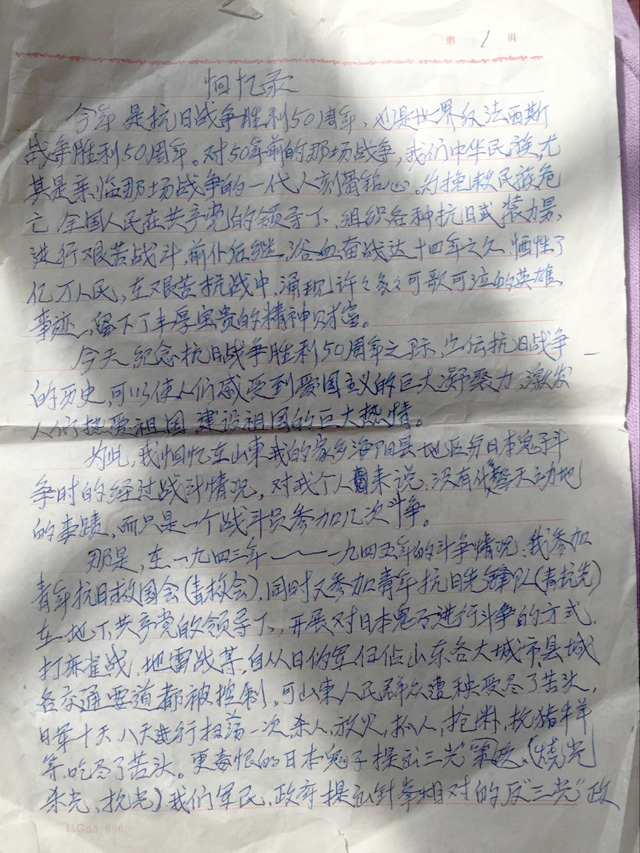 第 1 页
回忆录
今年是抗日战争胜利50周年，也是世界反法西斯
战争胜利50周年。对50年前的那场战争，我们中华民族，尤
其是亲临那场战争的一代人刻骨铭心。为挽救民族危
亡，全国人民在共产党的领导下，组织各种抗日武装力量，
进行艰苦战斗，前仆后继，浴血奋战达十四年之久，牺牲了
亿万人民，在艰苦抗战中，涌现许许多多可歌可泣的英雄
事迹，留下了丰厚宝贵的精神财富。
今天纪念抗日战争胜利50周年之际，宣传抗日战争
的历史，可以使人们感受到爱国主义的巨大凝聚力，激发
人们热爱祖国 建设祖国的巨大热情。
为此，我回忆在山东我的家乡海阳县地区与日本鬼子斗
争时的经过战斗情况，对我个人来说，没有什么惊天动地
的事蹟，而只是一个战斗员参加几次斗争。
那是，在一九四三年———一九四五年的斗争情况，我参加
青年抗日救国会（青救会），同时又参加青年抗日先锋队（青抗先）
在地下共产党的领导下，开展对日本鬼子进行斗争的方式，
打麻雀战，地雷战等，自从日伪军侵占山东各大城市，县城
各交通要道都被控制，可山东人民群众遭秧受尽了苦头，
日军十天八天进行扫荡一次，杀人，放火，抓人，抢粮，抗猪羊
等，吃尽了苦头。更毒恨的日本鬼子提出"三光"策政，（烧光
杀光，抗光）我们军民，政府提出针峯相对的反"三光"政